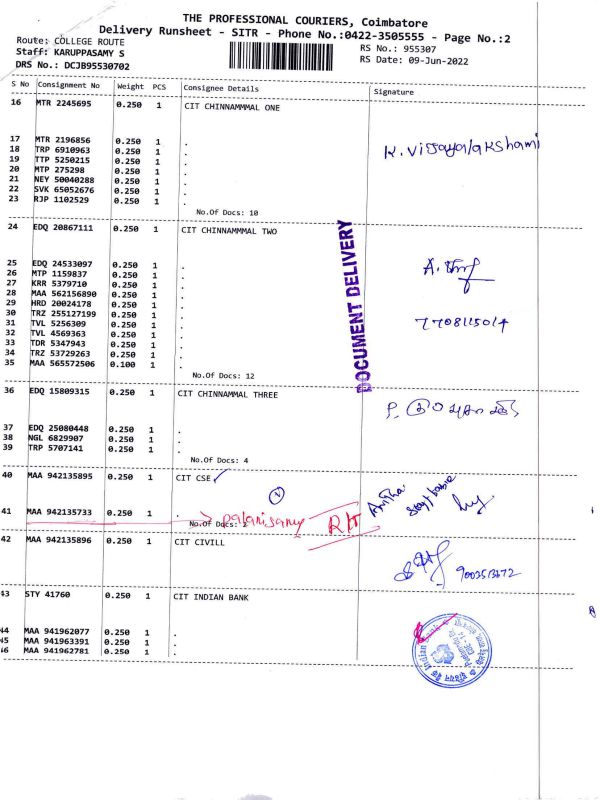 THE PROFESSIONAL COURIERS, Coimbatore
Delivery Runsheet - SITR - Phone No.:0422-3505555 - Page No.:2
Route: COLLEGE ROUTE
Staff: KARUPPASAMY S
DRS No.: DCJB95530702
RS No.: 955307
RS Date: 09-Jun-2022
S No Consignment No Weight PCS Consignee Details Signature
16 MTR 2245695 0.250 1 CIT CHINNAMMMAL ONE
17 MTR 2196856 0.250 1 .
K. Vijayalakshami
18 TRP 6910963 0.250 1 .
19 TTP 5250215 0.250 1 .
20 MTP 275298 0.250 1 .
21 NEY 50040288 0.250 1 .
22 SVK 65052676 0.250 1 .
23 RJP 1102529 0.250 1 .
No.Of Docs: 10
24 EDQ 20867111 0.250 1 CIT CHINNAMMMAL TWO
DOCUMENT DELIVERY
25 EDQ 24533097 0.250 1 .
26 MTP 1159837 0.250 1 .
27 KRR 5379710 0.250 1 .
28 MAA 562156890 0.250 1 .
29 HRD 20024178 0.250 1 .
30 TRZ 255127199 0.250 1 .
31 TVL 5256309 0.250 1 .
7708115014
32 TVL 4569363 0.250 1 .
33 TDR 5347943 0.250 1 .
34 TRZ 53729263 0.250 1 .
35 MAA 565572506 0.100 1 .
No.Of Docs: 12
36 EDQ 15809315 0.250 1 CIT CHINNAMMAL THREE
37 EDQ 25080448 0.250 1 .
38 NGL 6829907 0.250 1 .
39 TRP 5707141 0.250 1 .
No.Of Docs: 4
40 MAA 942135895 0.250 1 CIT CSE
41 MAA 942135733 0.250 1 .
palanisamy
No.Of Docs: 2
42 MAA 942135896 0.250 1 CIT CIVILL
9003513672
43 STY 41760 0.250 1 CIT INDIAN BANK
44 MAA 941962077 0.250 1 .
45 MAA 941963391 0.250 1 .
46 MAA 941962781 0.250 1 .
Indian Bank